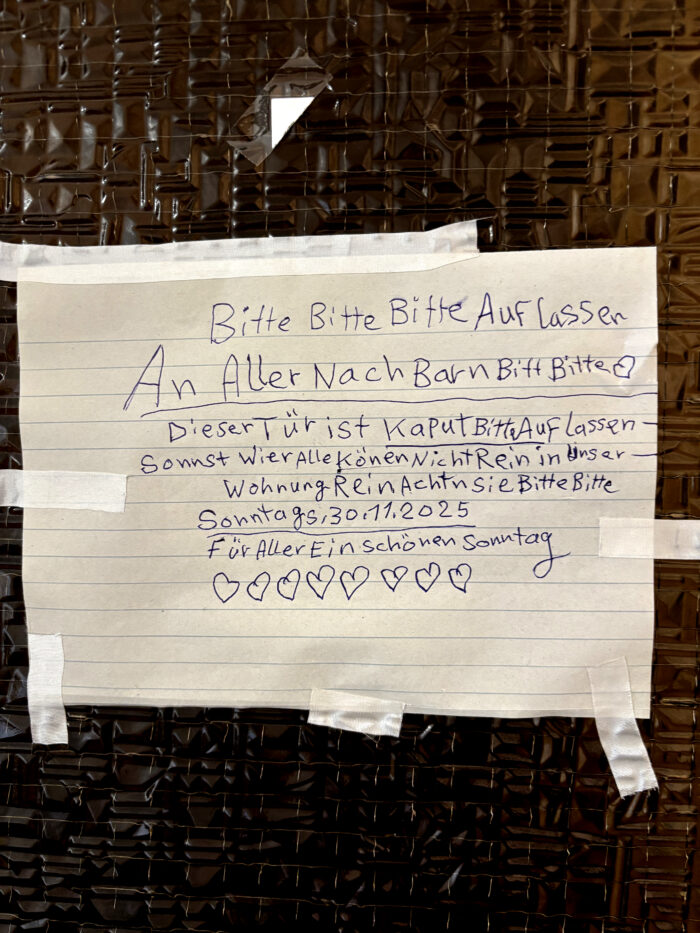 Bitte Bitte Bitte Auf lassen
An Aller Nach Barn Bitt Bitte ♡
Dieser Tür ist Kaput Bitte Auf lassen –
Sonnst Wier Alle Könen Nicht Rein in Unser –
Wohnung Rein Achtn sie Bitte Bitte
Sonntags, 30.11.2025
Für Aller Ein schönen Sonntag
♡ ♡ ♡ ♡ ♡ ♡ ♡ ♡